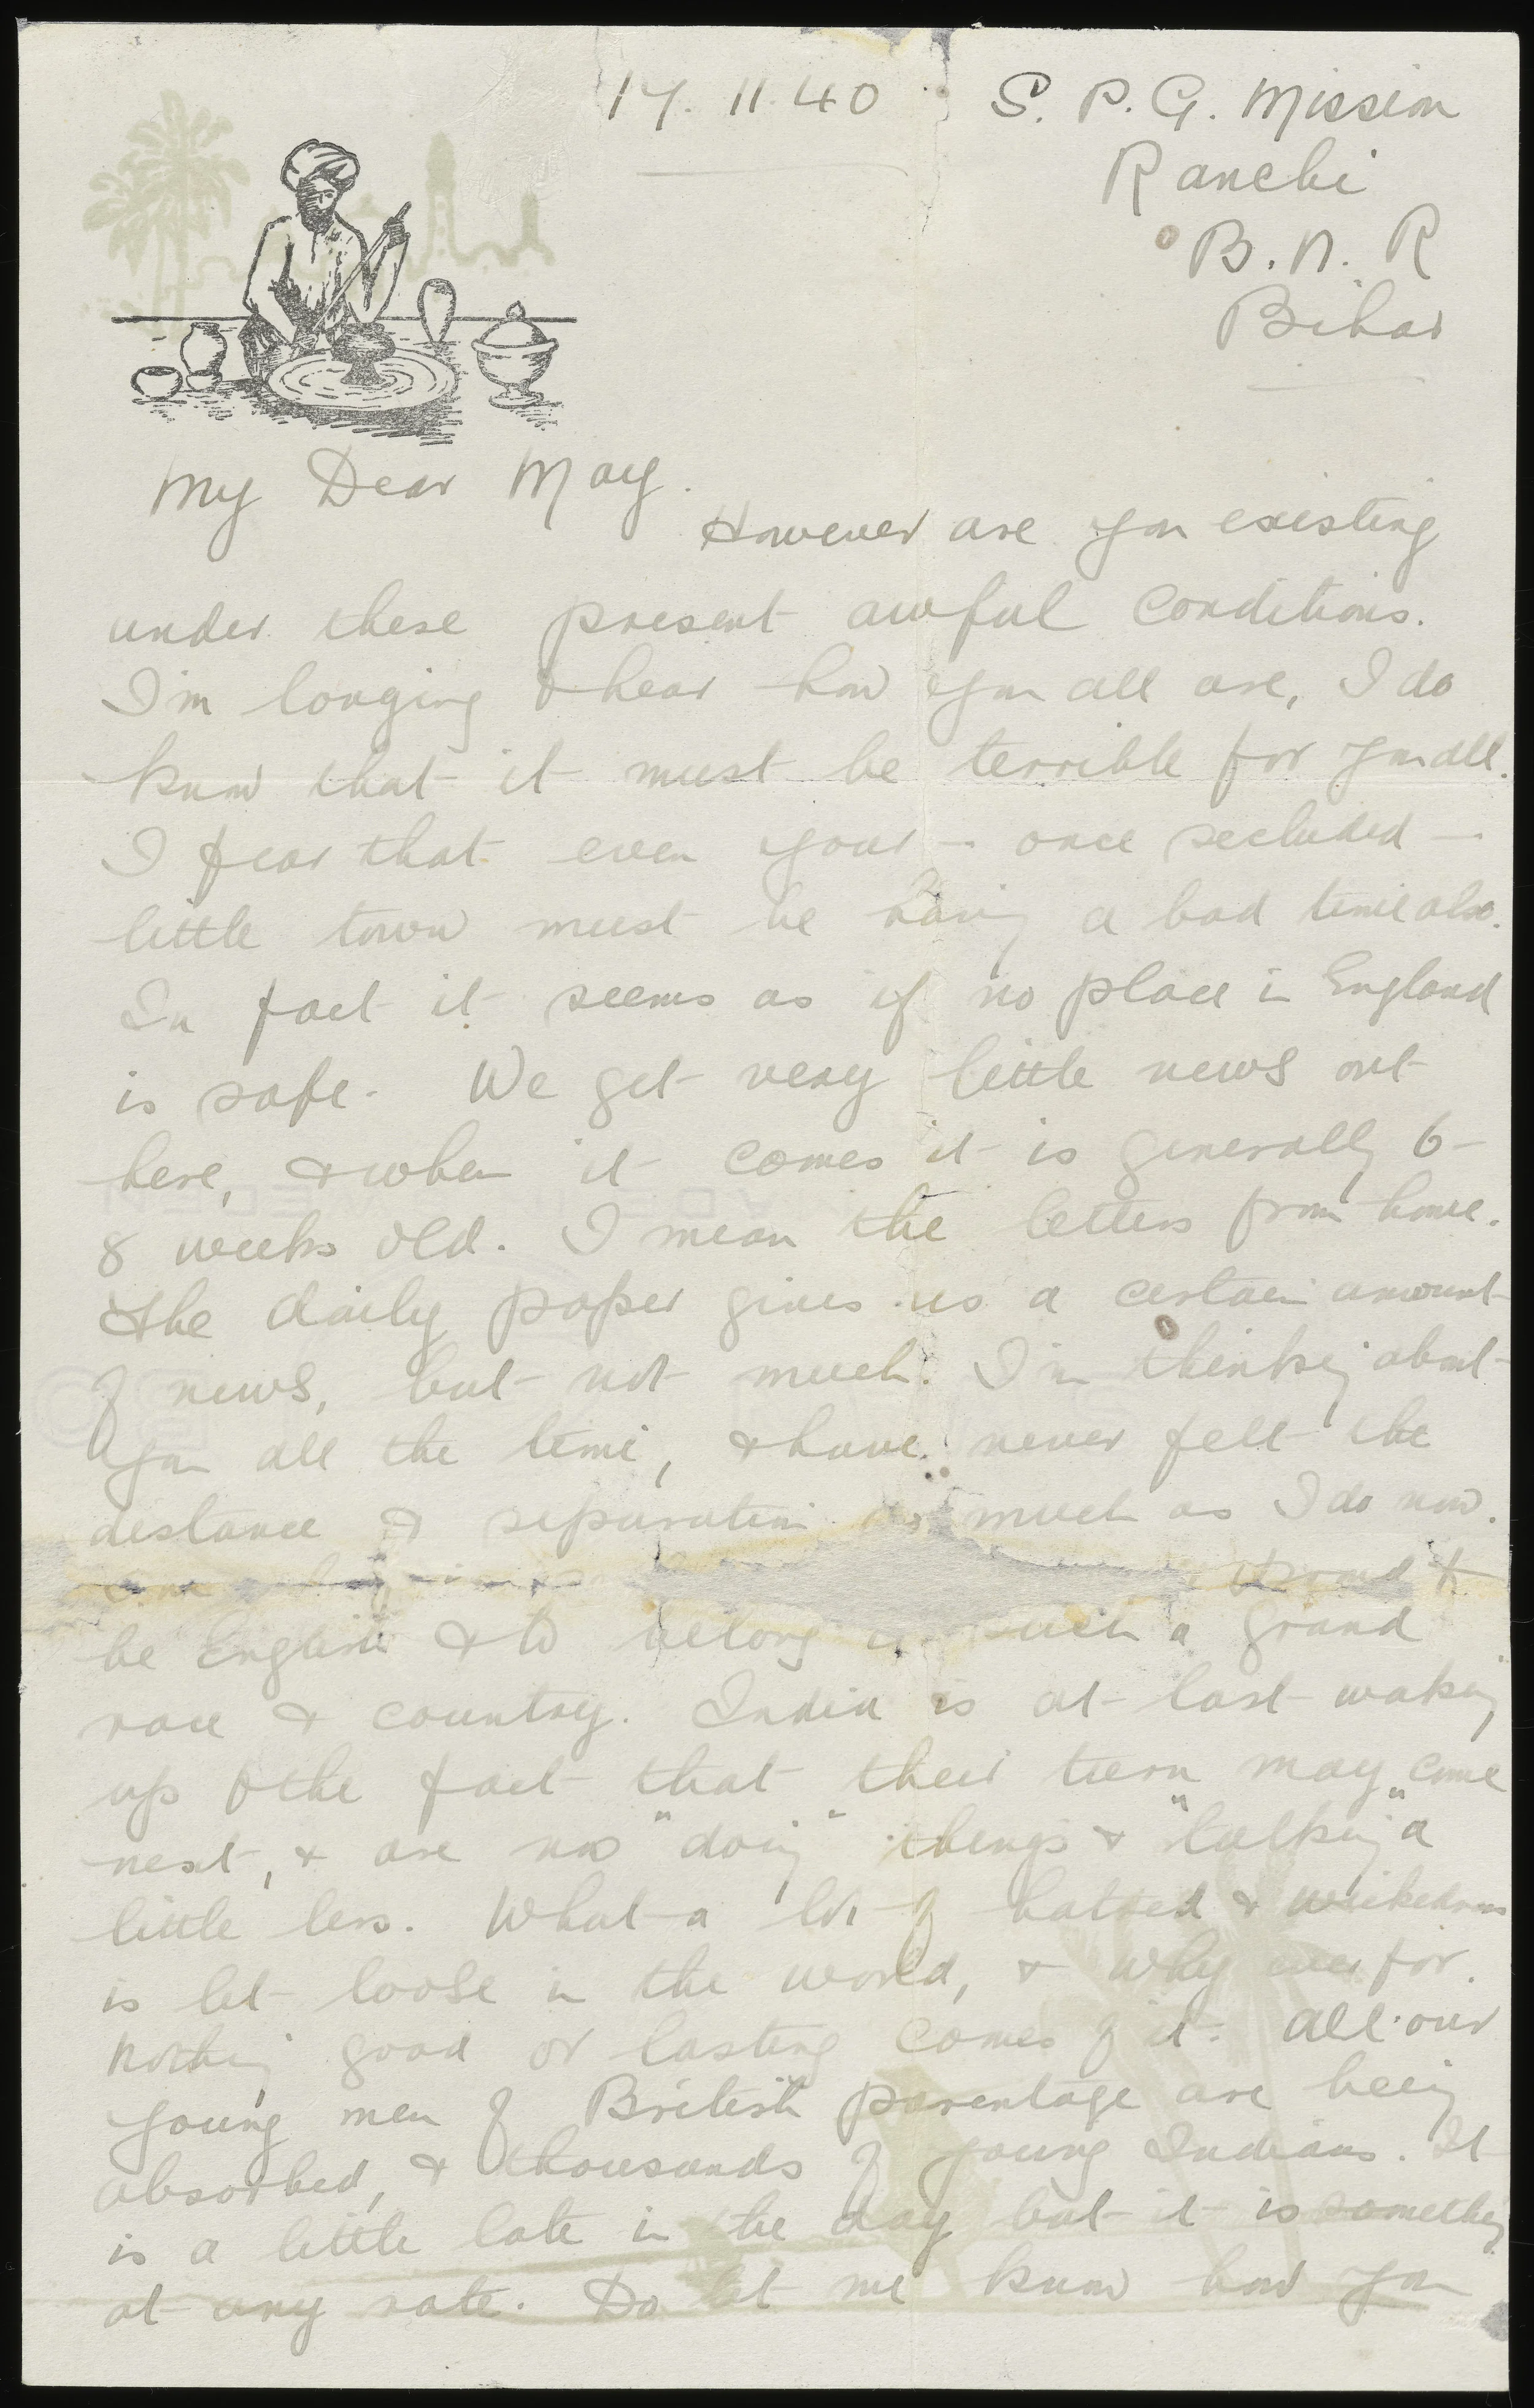 17. 11. 40 S. P. G. Mission
Ranchi
B. N. R
Bihar
My Dear May.
However are you existing
under these present awful conditions.
I'm longing to hear how you all are, I do
know that it must be terrible for you all.
I fear that even your - once secluded -
little town must be having a bad time also.
In fact it seems as if no place in England
is safe. We get very little news out
here, & when it comes it is generally 6-
8 weeks old. I mean the letters from home.
The daily paper gives us a certain amount
of news, but not much. I'm thinking about
you all the time, & have never felt the
distance & separation as much as I do now.
proud to
be English & to belong to such a grand
race & country. India is at last waking
up to the fact that their turn may come
next, & are now "doing" things & "talking" a
little less. What a lot of hatred & wickedness
is let loose in the world, & why ever for.
Nothing good or lasting comes of it. All our
young men of British parentage are being
absorbed, & thousands of young Indians. It
is a little late in the day but it is something
at any rate. Do let me know how you